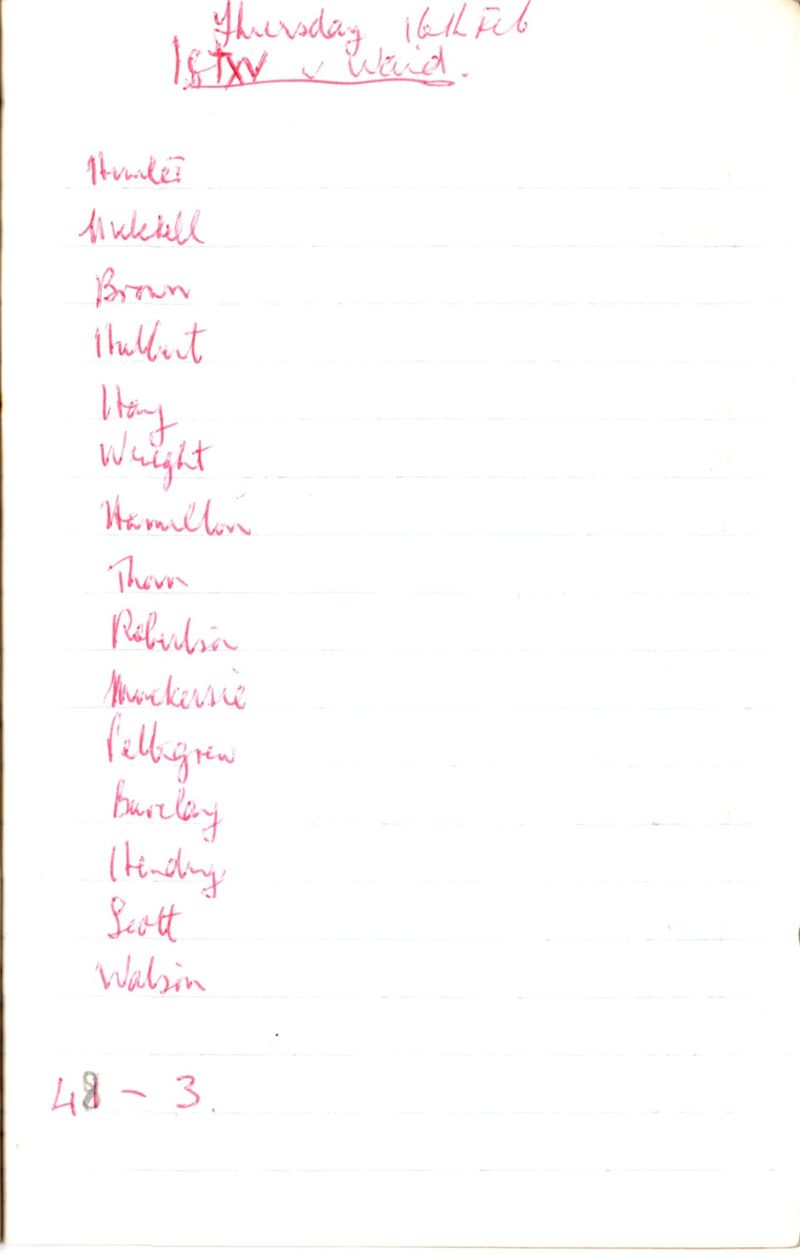 Thursday 16th Feb
1st XV v Waid.
Hunter
Brown
Hulbert
Hay
Wright
Hamilton
Thom
Robertson
Mackersie
Pettigrew
Barclay
Hendry
Scott
Watson
48 - 3.